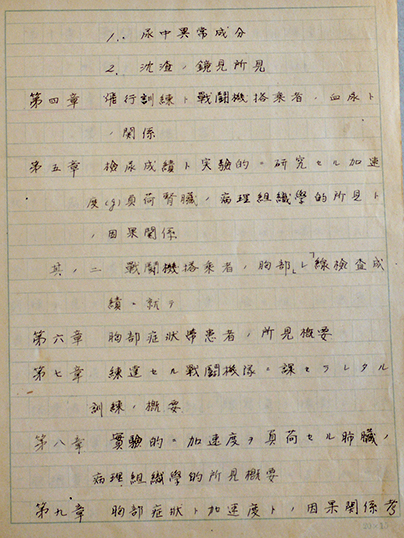 1. 尿中異常成分
2. 沈渣ノ鏡見所見
第四章 慣行訓練ト戰鬪機搭乗者ノ血尿ト
ノ關係
第五章 檢尿成績ト実驗的ニ研究セル加速
度(g)負荷腎臓ノ病理組織學的所見ト
ノ因果関係
其ノ二 戰鬪機搭乗者ノ胸部「レ」線檢査成
績ニ就テ
第六章 胸部症狀帶患者ノ所見概要
第七章 練達セル戰鬪機隊ニ課セラレタル
訓練ノ概要
第八章 實驗的ニ加速度ヲ負荷セル肺臓ノ
病理組織學的所見概要
第九章 胸部症狀ト加速度トノ因果関係考